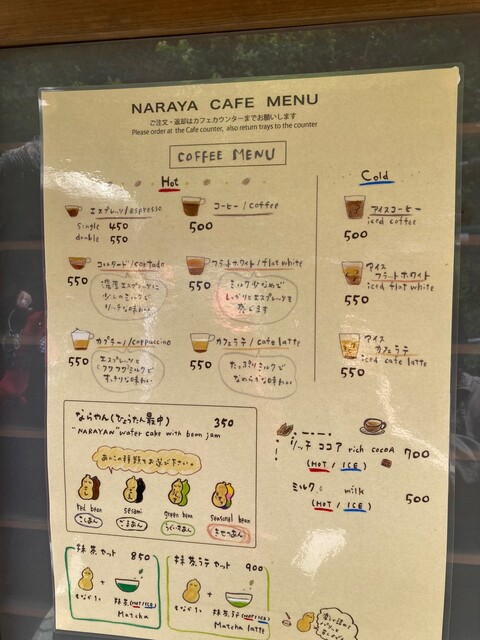 NARAYA CAFE MENU
ご注文・返却はカフェカウンターまでお願いします
Please order at the Cafe counter, also return trays to the counter
COFFEE MENU
Hot
エスプレッソ/espresso
single 450
double 550
コーヒー/coffee
500
コルタード/cortado
550
濃厚エスプレッソに
少しのミルクで
リッチな味わい
フラットホワイト/flat white
550
ミルク少なめで
しっかりとエスプレッソを
感じます
カプチーノ/cappuccino
550
エスプレッソと
フワフワミルクで
すっきりな味わい
カフェラテ/cafe latte
550
たっぷりミルクで
なめらかな味わい
Cold
アイスコーヒー
iced coffee
500
アイス
フラットホワイト
iced flat white
550
アイス
カフェラテ
iced cafe latte
550
ならやん(ひょうたん最中) 350
"NARAYAN" wafer cake with bean jam
あんこの種類をお選び下さい。
red bean
こしあん
sesami
ごまあん
green bean
うぐいすあん
seasonal bean
きせつあん
リッチ ココア rich cocoa 700
(HOT / ICE)
ミルク milk 500
(HOT / ICE)
抹茶セット 850
+
もなか1ヶ
抹茶(HOT/ICE)
Matcha
抹茶ラテセット 900
+
もなか1ヶ
抹茶ラテ(HOT/ICE)
Matcha latte